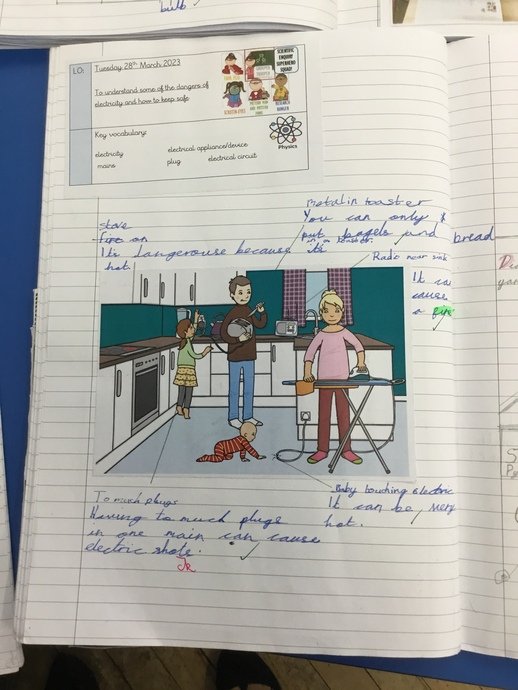 bulb
LO:
Tuesday 28th March 2023
To understand some of the dangers of
electricity and how to keep safe
Key vocabulary:
electricity
electrical appliance/device
mains
plug
electrical circuit
SCIENTIFIC
ENQUIRY
SUPERHERO
SQUAD
Physics
Metal in toaster
You can only
put bagels and bread
in a toaster.
stove
on
It's dangerouse because it's
hot.
Radio near sink
It can
cause
a fire
To much plugs
Having to much plugs
in one main can cause
electric shots.
Baby touching electric
It can be very
hot.